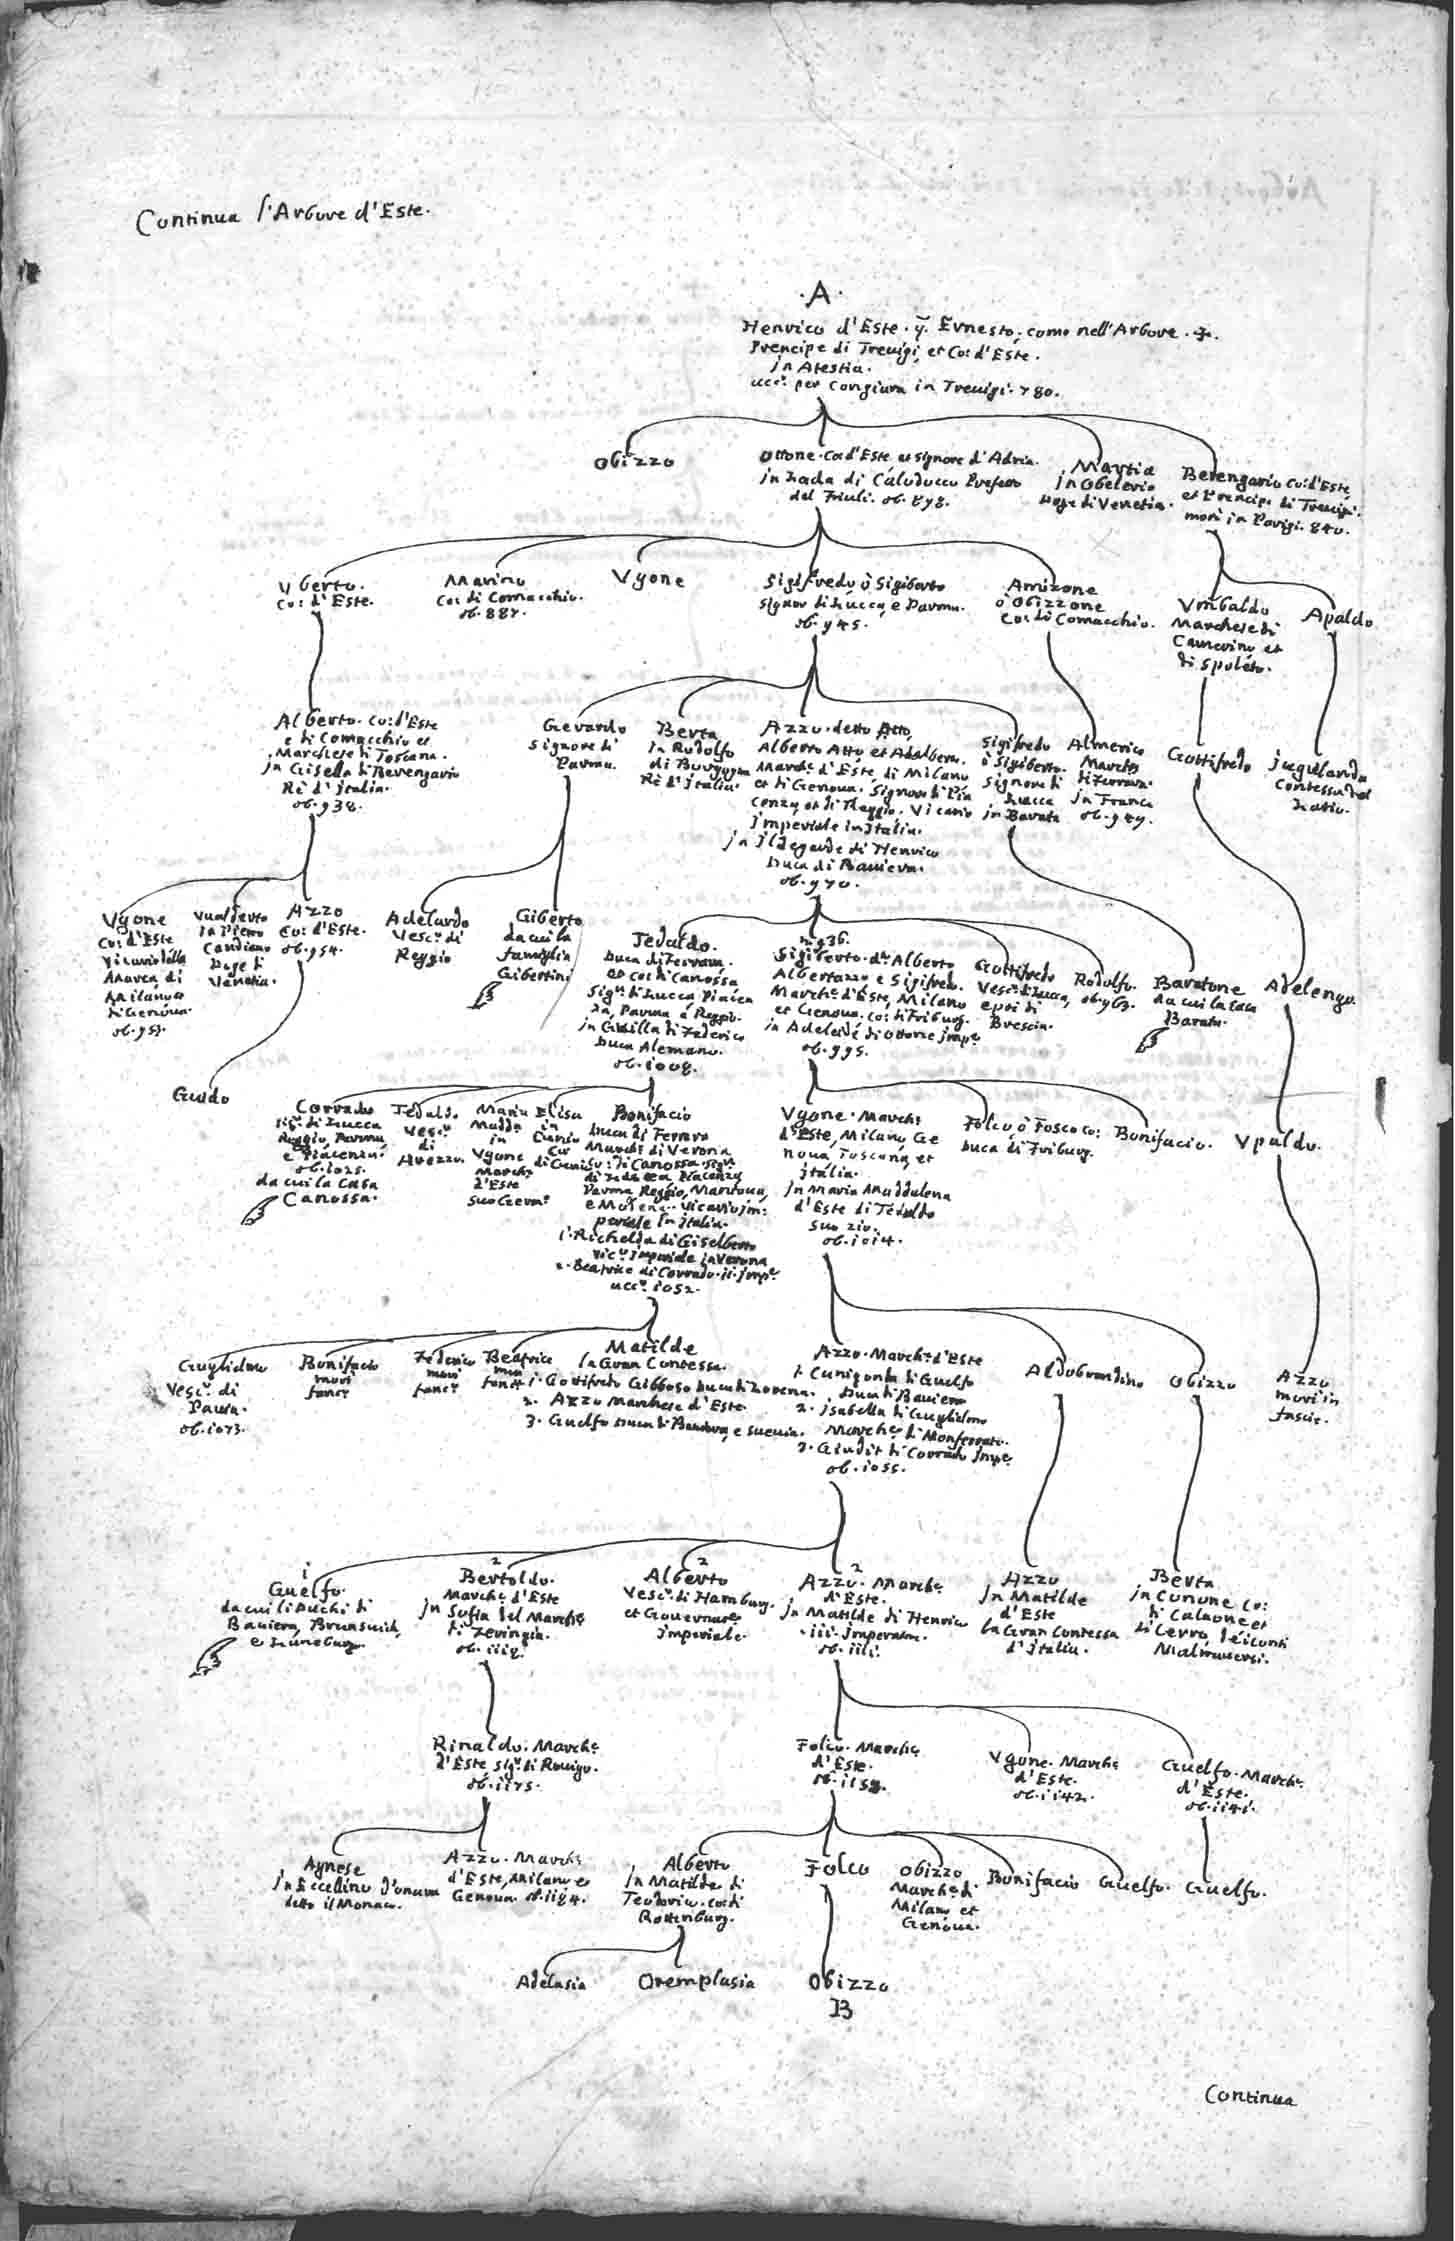 Continua l'Arbore d'Este.
·A·
Henrico d'Este. Ernesto, como nell'Arbore.
Prencipe di Treuigi, et Co: d'Este.
jn Atestia.
ucc.º per congiura in Treuigi. 780.
Obizzo
Ottone. Co: d'Este et signore d'Adria.
jn di
del Friuli. ob. 898.
Martia
jn Obelerio
Doge di Venetia.
Berengario Co: d'Este
et Prencipe di Treuigi.
morì in Parigi. 840.
Vberto.
Co: d'Este.
Marino
Co: di Comacchio.
ob. 887.
Vgone
Sigifredo ò Sigiberto
signor di Lucca, e Parma.
ob. 945.
Amizone
ò Obizzone
Co: di Comacchio.
Vmbaldo
Marchese di
Camerino et
di Spoleto.
Apaldo
Alberto. Co: d'Este
e di Comacchio et
Marchese di Toscana.
jn Gisella di Berengario
Rè d'Italia.
ob. 938.
Gerardo
signore di
Parma.
Berta
jn Rodolfo
di Borgogna
Rè d'Italia.
Azzo. detto Atto,
Alberto Atto, et Adalbero.
March.e d'Este, di Milano
et di Genoua. Signore di Pia
cenza, et di Reggio. Vicario
jmperiale in Italia.
jn Ildegarde di Henrico
Duca di Bauiera.
ob. 970.
Sigifredo
ò Sigiberto.
Signore di
Lucca
jn Barata
Almerico
March.e
di Ferrara.
jn Franca
ob. 949.
Gottifredo
Contessa del
Latio.
Vgone
Co: d'Este
Vicario della
Marca di
Milano et
di Genoua.
jn Pietro
Candiano
Doge di
Venetia.
Azzo
Co: d'Este.
ob. 954.
Adelardo
Vesc.º di
Reggio
Giberto
da cui la
famiglia
Gibertini
Tedaldo.
Duca di Ferrara.
et Co: di Canossa
Sig.re di Lucca Piacen
za, Parma e Reggio.
jn Guilla di Federico
Duca Alemano.
ob. 1008.
Sigiberto. d.º Alberto
Albertazzo e Sigifredo.
March.e d'Este, Milano
et Genoua. Co: di Friburg.
jn Adeleide di Ottone jmp.e
ob. 995.
Gottifredo
Vesc.º di Lucca,
e poi di
Brescia.
Rodolfo.
ob. 963.
Baratone
da cui la Casa
Barata.
Adelengo.
Guido
Corrado
Sig.e di Lucca
Reggio, Parma
e Piacenza
ob. 1025.
da cui la Casa
Canossa.
Tedaldo.
Vesc.º
di
Arezzo.
Maria
Madda
in
Vgone
March.e
d'Este
Elisa
in
Bonifacio
Duca di Ferrara
March.e di Verona
Co: di Canossa. Sig.re
di Piacenza
Parma Reggio, Mantoua,
e Modena. Vicario jm:
periale in Italia.
1. Richelda di Giselberto
Vic.º Imperiale in Verona
2. Beatrice di Corrado. ii. jmp.e
ucc.º 1052.
Vgone. March.e
d'Este, Milano, Ge
noua, Toscana, et
Italia.
jn Maria Maddalena
d'Este di Tedaldo
suo zio.
ob. 1014.
Folco ò Fosco Co:
Duca di Friburg.
Bonifacio.
Vpaldo.
Guglielmo
Vesc.º di
Pauia.
ob. 1073.
Bonifacio
morì
fanc.º
Federico
morì
fanc.º
Beatrice
morì
fanc.ª
Matilde
la Gran Contessa.
1. Gottifredo Gibboso Duca di Lorena.
2. Azzo Marchese d'Este.
3. Guelfo Duca di Bauiera, e Sueuia.
Azzo. March.e d'Este
1. Cunigonda di Guelfo
Duca di Bauiera
2. Isabella di Guglielmo
March.e di Monferrato.
3. Giudit di Corrado Jmp.e
ob. 1055.
Aldobrandino
Obizzo
Azzo
morì in
fascie.
1
Guelfo.
da cui li Duchi di
Bauiera, Brunsuich,
e Luneburg.
2
Bertoldo.
March.e d'Este
jn Sofia del March.e
di Zeringia.
2
Alberto
Vesc.º di Hamburg.
et Gouernat.e
jmperiale.
2
Azzo. March.e
d'Este.
jn Matilde di Henrico
iii. jmperatore.
ob. 1111.
Azzo
jn Matilde
d'Este
la Gran Contessa
d'Italia.
Berta
jn Cunone Co:
di Calaone et
di Cerro,
Rinaldo. March.e
d'Este, sig.e di Rouigo.
ob. 1175.
Folco. March.e
d'Este.
Vgone. March.e
d'Este.
ob. 1142.
Guelfo. March.e
d'Este.
ob. 1141.
Agnese
jn Eccellino d'Onara
detto il Monaco.
Azzo. March.e
d'Este, Milano e
Genoua. ob. 1184.
Alberto
jn Matilde di
Teodorico. Co: di
Rottenburg.
Folco
Obizzo
March.e di
Milano et
Genoua.
Bonifacio
Guelfo.
Guelfo.
Adelasia
Oremplasia
Obizzo
B
Continua